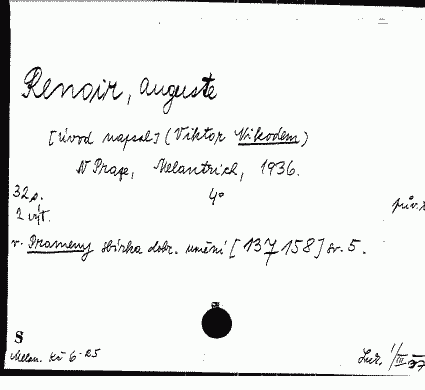 Renoir, Auguste
[Úvod napsal] (Viktor Nikodem)
V Praze, Melantrich, 1936.
32 p. 4°
2 výt.
v. Prameny sbírka dobr. umění [137 158] sv. 5.
S
Melan. Kč 6·25